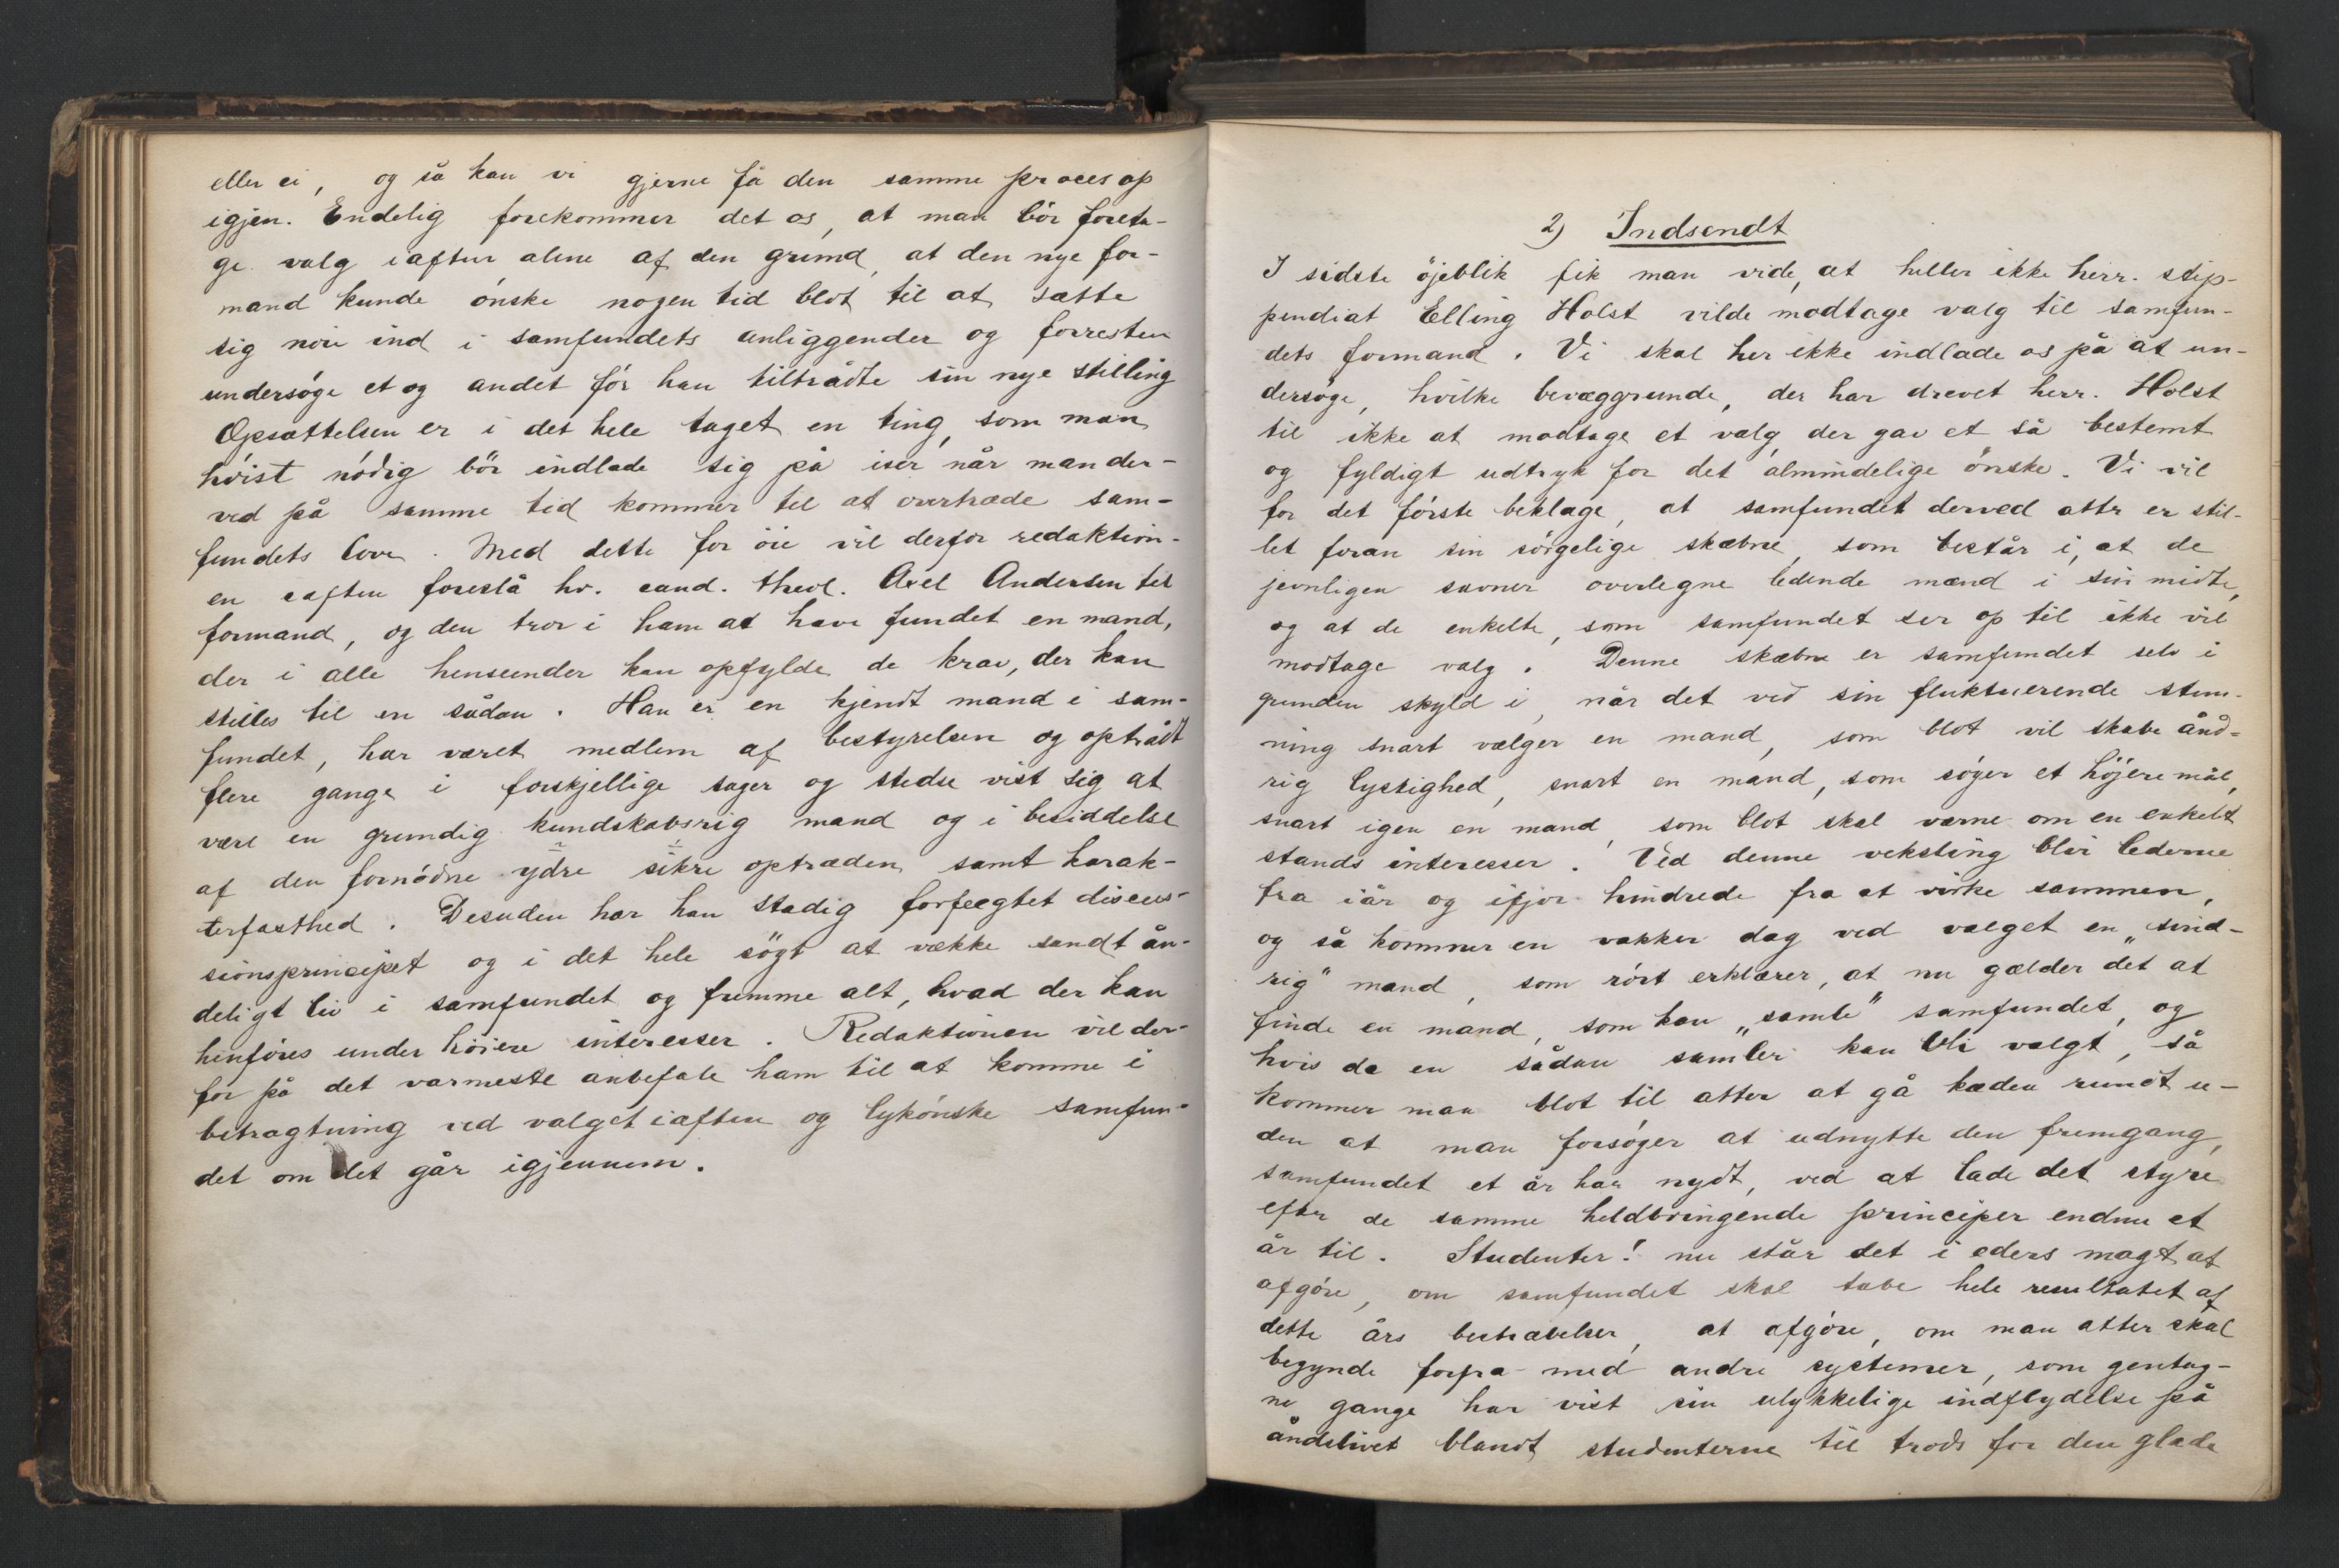 eller ei, og så kan vi gjerne få den samme proces op
igjen. Endelig forekommer det os, at man bör foreta-
ge valg iaften alene af den grund, at den nye for-
mand kunde önske nogen tid blot til at sætte
sig nöie ind i samfundets anliggender og forresten
undersöge et og andet för han tiltrådte sin nye stilling
Opsættelsen er i det hele taget en ting, som man
höist nödig bör indlade sig på især når man der-
ved på samme tid kommer til at overtræde sam-
fundets love. Med dette for öie vil derfor redaktion-
en aften foreslå hr. cand. theol. Axel Andersen til
formand, og den tror i ham at have fundet en mand,
der i alle henseender kan opfylde de krav, der kan
stilles til en sådan. Han er en kjendt mand i sam-
fundet, har været medlem af bestyrelsen og optrådt
flere gange i forskjellige sager og stedse vist sig at
være en grundig kundskabsrig mand og i besiddelse
af den fornödne ydre sikre optræden samt karak-
terfasthed. Desuden har han stadig forfægtet discus-
sionsprincipet og i det hele sögt at vække sandt ån-
deligt liv i samfundet og fremme alt, hvad der kan
henföres under höiere interesser. Redaktionen vil der-
for på det varmeste anbefale ham til at komme i
betragtning ved valget iaften og lykönske samfun-
det om det går igjennem.
2) Indsendt
I sidste öjeblik fik man vide, at heller ikke herr. stip-
pendiat Elling Holst vilde modtage valg til samfun-
dets formand. Vi skal her ikke indlade os på at un-
dersöge, hvilke bevæggrunde, der har drevet herr. Holst
til ikke at modtage et valg, der gav et så bestemt
og fyldigt udtryk for det almindelige önske. Vi vil
for det förste beklage, at samfundet derved attr er stil-
let foran sin sörgelige skæbne, som består i, at de
jevnligen savner overlegne ledende mænd i sin midte,
og at de enkelte, som samfundet ser op til ikke vil
modtage valg. Denne skæbne er samfundet selv i
grunden skyld i, når det ved sin fluktuerende stem-
ning snart vælger en mand, som blot vil skabe ånd-
rig lystighed, snart en mand, som söger et höjere mål,
snart igen en mand, som blot skal værne om en enkelt
stands interesser. Ved denne veksling blir lederne
fra iår og ifjor hindrede fra at virke sammen,
og så kommer en vakker dag ved valget en „sind-
rig" mand, som rört erklærer, at nu gælder det at
finde en mand, som kan „samle" samfundet, og
hvis da en sådan samler kan bli valgt, så
kommer man blot til atter at gå kæden rundt u-
den at man forsöger at udnytte den fremgang,
samfundet et år har nydt, ved at lade det styre
efter de samme heldbringende principer endnu et
år til. Studenter! nu står det i eders magt at
afgöre, om samfundet skal tabe hele resultatet af
dette års bestræbelser, at afgöre, om man atter skal
begynde forfra med andre systemer, som gentag-
ne gange har vist sin ulykkelige indflydelse på
åndslivet blandt studenterne til trods for den glade